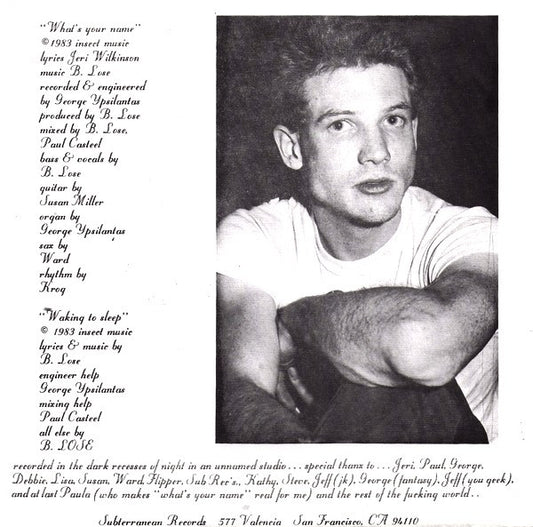 "What's your name"
©1983 insect music
lyrics Jeri Wilkinson
music B. Lose
recorded & engineered
by George Ypsilantas
produced by B. Lose
mixed by B. Lose,
Paul Casteel
bass & vocals by
B. Lose
guitar by
Susan Miller
organ by
George Ypsilantas
sax by
Ward
rhythm by
Krog
"Waking to sleep"
© 1983 insect music
lyrics & music by
B. Lose
engineer help
George Ypsilantas
mixing help
Paul Casteel
all else by
B. LOSE
recorded in the dark recesses of night in an unnamed studio... special thanx to... Jeri, Paul, George,
Debbie, Lisa, Susan, Ward, Flipper, Sub Rec's., Kathy, Steve, Jeff (jk), George (fantasy), Jeff (you geek),
and at last Paula (who makes "what's your name" real for me) and the rest of the fucking world..
Subterranean Records 577 Valencia San Francisco, CA 94110